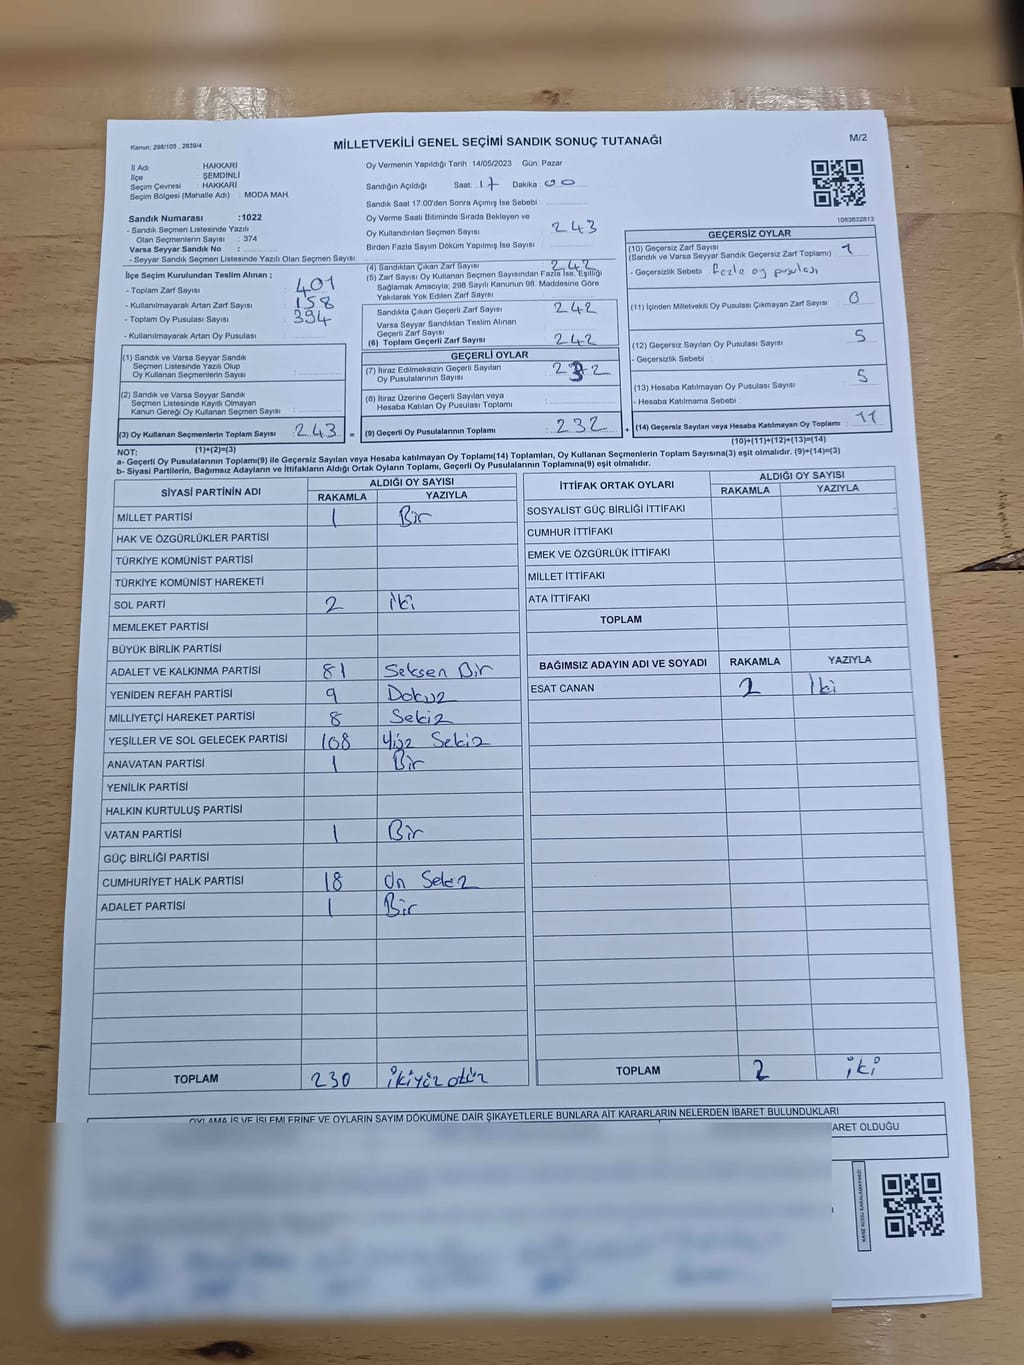 Kanun; 298/105 , 2839/4
MİLLETVEKİLİ GENEL SEÇİMİ SANDIK SONUÇ TUTANAĞI
M/2
İl Adı : HAKKARİ
İlçe : ŞEMDİNLİ
Seçim Çevresi : HAKKARİ
Seçim Bölgesi (Mahalle Adı) : MODA MAH.
Sandık Numarası :1022
- Sandık Seçmen Listesinde Yazılı
Olan Seçmenlerin Sayısı : 374
Varsa Seyyar Sandık No :
- Seyyar Sandık Seçmen Listesinde Yazılı Olan Seçmen Sayısı:
Oy Vermenin Yapıldığı Tarih :14/05/2023 Gün: Pazar
Sandığın Açıldığı Saat: 17 Dakika 00
Sandık Saat 17.00'den Sonra Açımış İse Sebebi :
Oy Verme Saati Bitiminde Sırada Bekleyen ve
Oy Kullandırılan Seçmen Sayısı : 243
Birden Fazla Sayım Döküm Yapılmış İse Sayısı :
1083632813
İlçe Seçim Kurulundan Teslim Alınan ;
- Toplam Zarf Sayısı : 401
- Kullanılmayarak Artan Zarf Sayısı : 158
- Toplam Oy Pusulası Sayısı : 394
- Kullanılmayarak Artan Oy Pusulası :
(1) Sandık ve Varsa Seyyar Sandık
Seçmen Listesinde Yazılı Olup
Oy Kullanan Seçmenlerin Sayısı :
(2) Sandık ve Varsa Seyyar Sandık
Seçmen Listesinde Kayıtlı Olmayan
Kanun Gereği Oy Kullanan Seçmen Sayısı :
(3) Oy Kullanan Seçmenlerin Toplam Sayısı : 243 =
(4) Sandıktan Çıkan Zarf Sayısı : 242
(5) Zarf Sayısı Oy Kullanan Seçmen Sayısından Fazla İse, Eşitliği
Sağlamak Amacıyla; 298 Sayılı Kanunun 98. Maddesine Göre
Yakılarak Yok Edilen Zarf Sayısı :
Sandıkta Çıkan Geçerli Zarf Sayısı : 242
Varsa Seyyar Sandıktan Teslim Alınan
Geçerli Zarf Sayısı :
(6) Toplam Geçerli Zarf Sayısı : 242
GEÇERLİ OYLAR
(7) İtiraz Edilmeksizin Geçerli Sayılan
Oy Pusulalarının Sayısı : 232
(8) İtiraz Üzerine Geçerli Sayılan veya
Hesaba Katılan Oy Pusulası Toplamı :
(9) Geçerli Oy Pusulalarının Toplamı : 232 +
GEÇERSİZ OYLAR
(10) Geçersiz Zarf Sayısı : 1
(Sandık ve Varsa Seyyar Sandık Geçersiz Zarf Toplamı)
- Geçersizlik Sebebi : fazla oy pusulası
(11) İçinden Milletvekili Oy Pusulası Çıkmayan Zarf Sayısı : 0
(12) Geçersiz Sayılan Oy Pusulası Sayısı : 5
- Geçersizlik Sebebi :
(13) Hesaba Katılmayan Oy Pusulası Sayısı : 5
- Hesaba Katılmama Sebebi :
(14) Geçersiz Sayılan veya Hesaba Katılmayan Oy Toplamı : 11
NOT: (1)+(2)=(3) (10)+(11)+(12)+(13)=(14)
a- Geçerli Oy Pusulalarının Toplamı(9) ile Geçersiz Sayılan veya Hesaba katılmayan Oy Toplamı(14) Toplamları, Oy Kullanan Seçmenlerin Toplam Sayısına(3) eşit olmalıdır. (9)+(14)=(3)
b- Siyasi Partilerin, Bağımsız Adayların ve İttifakların Aldığı Ortak Oyların Toplamı, Geçerli Oy Pusulalarının Toplamına(9) eşit olmalıdır.
SİYASİ PARTİNİN ADI ALDIĞI OY SAYISI
RAKAMLA YAZIYLA
MİLLET PARTİSİ 1 Bir
HAK VE ÖZGÜRLÜKLER PARTİSİ
TÜRKİYE KOMÜNİST PARTİSİ
TÜRKİYE KOMÜNİST HAREKETİ
SOL PARTİ 2 iki
MEMLEKET PARTİSİ
BÜYÜK BİRLİK PARTİSİ
ADALET VE KALKINMA PARTİSİ 81 Seksen Bir
YENİDEN REFAH PARTİSİ 9 Dokuz
MİLLİYETÇİ HAREKET PARTİSİ 8 Sekiz
YEŞİLLER VE SOL GELECEK PARTİSİ 108 Yüz Sekiz
ANAVATAN PARTİSİ 1 Bir
YENİLİK PARTİSİ
HALKIN KURTULUŞ PARTİSİ
VATAN PARTİSİ 1 Bir
GÜÇ BİRLİĞİ PARTİSİ
CUMHURİYET HALK PARTİSİ 18 On Sekiz
ADALET PARTİSİ 1 Bir
TOPLAM 230 ikiyüz otuz
İTTİFAK ORTAK OYLARI ALDIĞI OY SAYISI
RAKAMLA YAZIYLA
SOSYALİST GÜÇ BİRLİĞİ İTTİFAKI
CUMHUR İTTİFAKI
EMEK VE ÖZGÜRLÜK İTTİFAKI
MİLLET İTTİFAKI
ATA İTTİFAKI
TOPLAM
BAĞIMSIZ ADAYIN ADI VE SOYADI RAKAMLA YAZIYLA
ESAT CANAN 2 İki
TOPLAM 2 iki
OYLAMA İŞ VE İŞLEMLERİNE VE OYLARIN SAYIM DÖKÜMÜNE DAİR ŞİKAYETLERLE BUNLARA AİT KARARLARIN NELERDEN İBARET BULUNDUKLARI
ARET OLDUĞU